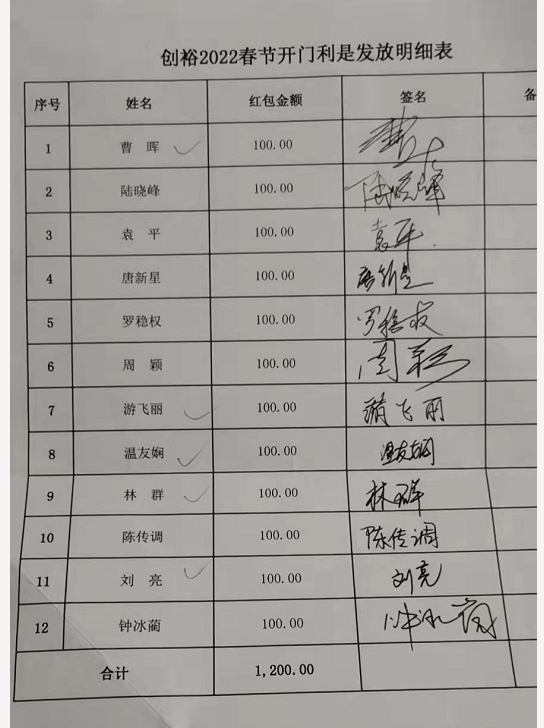 创裕2022春节开门利是发放明细表
序号 姓名 红包金额 签名 备
1 曹 晖 100.00
2 陆晓峰 100.00 陆晓峰
3 袁 平 100.00 袁平.
4 唐新星 100.00 唐新星
5 罗稳权 100.00 罗稳权
6 周 颖 100.00 周颖
7 游飞丽 100.00 游飞丽
8 温友娴 100.00 温友娴
9 林 群 100.00 林群
10 陈传调 100.00 陈传调
11 刘 亮 100.00 刘亮
12 钟冰蔺 100.00
合计 1,200.00